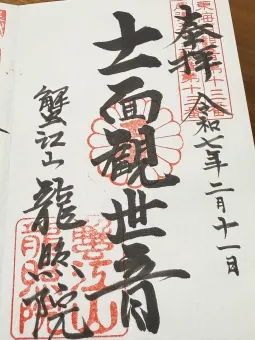 奉拝
令和七年二月十一日
十一面觀世音
蟹江山 龍照院